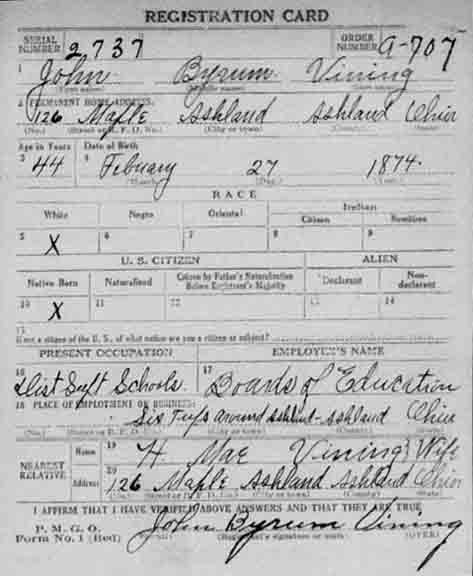 REGISTRATION CARD
SERIAL NUMBER 2737 ORDER NUMBER A-707
1 John Byrum Vining
(First name) (Middle name) (Last name)
2 PERMANENT HOME ADDRESS:
126 Maple Ashland Ashland Ohio
(No.) (Street or R. F. D. No.) (City or town) (County) (State)
Age in Years Date of Birth
3 44 4 Febuary 27 1874.
(Month.) (Day.) (Year.)
RACE
White Negro Oriental Indian
Citizen Noncitizen
5 X 6 7 8 9
U. S. CITIZEN ALIEN
Native Born Naturalized Citizen by Father's Naturalization Before Registrant's Majority Declarant Non-declarant
10 X 11 12 13 14
15 If not a citizen of the U. S., of what nation are you a citizen or subject?
PRESENT OCCUPATION EMPLOYER'S NAME
16 Dist Supt Schools. 17 Boards of Education
18 PLACE OF EMPLOYMENT OR BUSINESS:
Six Twps around Ashland Ohio
(No.) (Street or R. F. D. No.) (City or town) (County) (State)
NEAREST RELATIVE
Name 19 H. Mae Vining Wife
Address 20 126 Maple Ashland Ashland Ohio
(No.) (Street or R. F. D. No.) (City or town) (County) (State)
I AFFIRM THAT I HAVE VERIFIED ABOVE ANSWERS AND THAT THEY ARE TRUE
P. M. G. O.
Form No. 1 (Red) John Byrum Vining
(Registrant's signature or mark) (OVER)